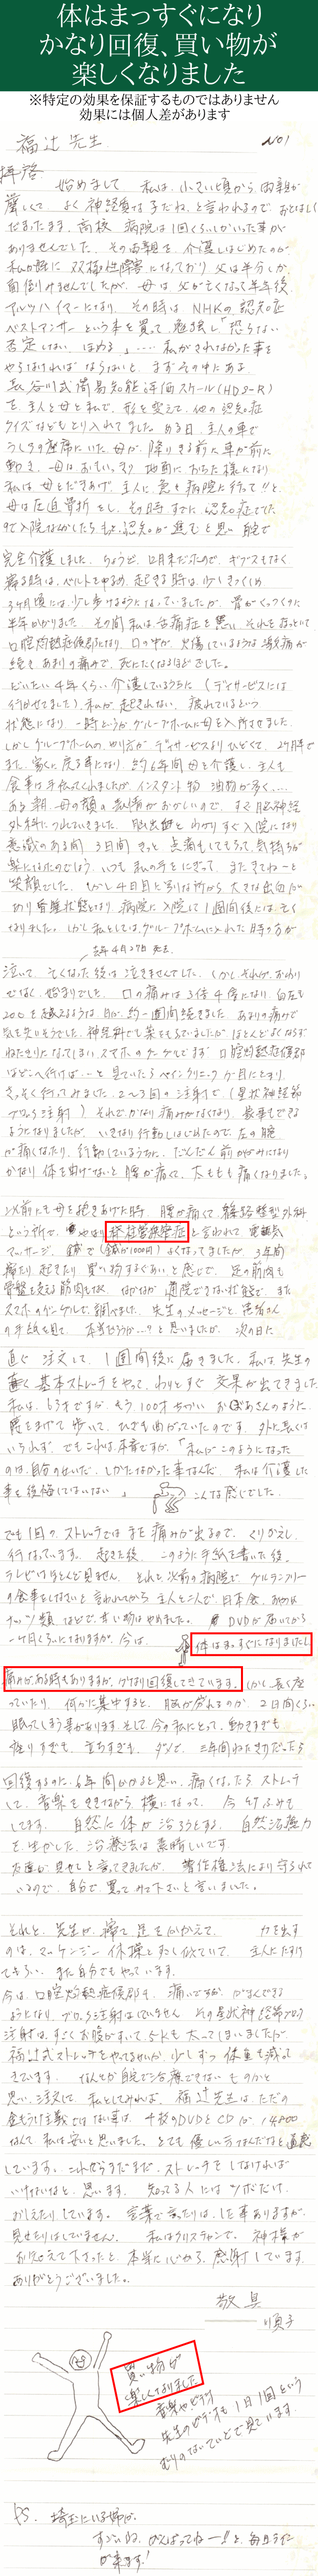 体はまっすぐになり
かなり回復、買い物が
楽しくなりました
※特定の効果を保証するものではありません
効果には個人差があります
No1
福辻先生
拝啓
始めまして 私は、小さい頃から、両親が
厳しくて よく神経質な子だね、と言われるので、おとなしく
だまったまま、高校 病院は1回くらいしかいった事が
ありませんでした。その両親を、介護しはじめたのが
アルツハイマーになり、その時は、NHKの認知症
ベストアンサーという本を買って勉強し「怒らない
否定しない ほめる」……私がされなかった事を
やらなければならないと、まずその中にある
長谷川式簡易知能評価スケール(HDS-R)
を、主人と母と私で、形を変えて、他の認知症
クイズなどもとり入れてました。ある日、主人の車で
うしろの座席にいた母が、降りきる前に車が前に
動き、母はおもいっきり地面に、おちた様になり
完全介護しました。ちょうど、12月末だったので、ギブスもなく
寝る時は、ベルトをゆるめ、起きる時は、少しきつくしめ
3ヶ月後には、少し歩けるようになっていましたが、骨がくっつくのに
半年かかりました。
口腔灼熱症候郡になり、口の中が、火傷しているような激痛が
続き、あまりの痛みで、死にたくなるほどでした。
だいたい4年くらい介護しているうちに(デイサービスには
行かせてました)、私が起きれない、疲れているという
状態になり 一時どうかグループホームに母を入所させました。
食事は手伝ってくれましたが、インスタント物 油物が多く…
ある朝、母の顔の表情がおかしいので、すぐ脳神経
外科につれていきました。脳出血とわかりすぐ入院になり
意識のある間 3日間
笑顔でした。しかし4日目と
あり昏睡状態となり、病院に入院して1週間後には、亡く
なりました。しかし私としては、グループホームに入れた時の方が
去年4月27日 死去
泣いて、亡くなった後は泣きませんでした。
200を越えるような日が、約一週間続きました。あまりの痛みで
ブロック注射)それでかなり痛みがなくなり、食事もできる
ようになりましたが、いきなり行動しはじめたので、左の腕
が痛くなったり、行動しているうちに、だんだん前かがみになり
かなり体を曲げないと腰が痛くて、太ももも痛くなりました。
以前にも母を抱きあげた時、腰が痛くて
という所で、やはり脊柱管狭窄症と言われて 電気
マッサージ、鍼で(鍼が1000円)よくなってましたが、3年間
寝たり起きたり、買い物するぐらいと感じで、足の筋肉も
骨盤を支える筋肉もなく、なかなか通院できない状態で、また
スマホのグーグルで、調べました。先生のメッセージと患者さん
の手紙を見て、本当だろうか…?と思いましたが、次の日に
直ぐ注文して、1週間後に届きました。私は、先生の
書く基本ストレッチをやって、わりとすぐ効果が出てきました。
私は、63才ですが、もう100才ちかいおばあさんのように、
腰をまげて歩いて、ひざも曲がっていたのです。外に長くは
いられず、でもこれは、本音ですが、「私がこのようになった
のは、自分のせいだ、しかたなかった事なんだ、私は介護した
事を後悔してはいない」 こんな感じでした。
でも1回の、ストレッチではまだ痛みが出るので、くりかえし
行なっています。起きた後、このように手紙を書いた後、
テレビはほとんど見ません。それと以前の病院で、グルテンフリー
の食事をしなさいと言われてから主人と二人で日本食、お肉
ナッツ類などで、甘い物はやめました。DVDが届いてから
一ヶ月くらいになりますが、今は、体はまっすぐになりましたし
痛みがある時もありますが、かなり回復してきています。しかし長く座
っていたり、何かに集中すると、脳が疲れるのか、2日間くらい
眠ってしまう事があります。そして、今の私にとって、動きすぎも
座りすぎも、立ちすぎも、ダメで、三年間ねたきりだったら
回復するのに、6年間かかると思い、痛くなったら ストレッチ
して、音楽をききながら横になって、今
してます。自然に体が治ろうとする、自然治癒力
を、生かした、治療法は素晴しいです。
友達が、見せてと言ってきましたが、著作権法により守られて
いるので、自分で、買ってみて下さいと言いました。
それと、先生が、寝て足を 力を出す
のは、マッケンジー体操と少し似ていて、主人にたすけ
てもらい、また自分でもやっています。
今は、口腔灼熱症候郡も、痛いですが、がまんできる
ようになり、ブロック注射はしていません その星状神経節ブロック
注射は、すごくお腹がすいて、5kも太ってしまいましたが
福辻式ストレッチをやってるせいか、少しずつ体重も減って
きています。なんとか自宅で治療できないものかと
思い、注文して、私としてみれば、福辻先生は、ただの
金もうけ主義ではない事は、4枚のDVDとCDが、14800
なんて、私は安いと思いました。とても優しい方なんだなと直感
しています。これからまだまだ、ストレッチをしなければ
いけないなと思います。知ってる人にはツボだけ
おしえたりしています。言葉で言ったりは、した事ありますが、
見せたりはしていません。私はクリスチャンで、神様が
与えて下さったと、本当に心から、感謝しています。
ありがとうございました。
敬具
順子
買い物が
楽しくなりました
音楽や、ピラティ
先生のビデオも1日1回という
むりのないていどで見ています。
P.S. 埼玉にいる姉が、
すごいね、がんばってねー!!と、毎日ライン
が来ます!